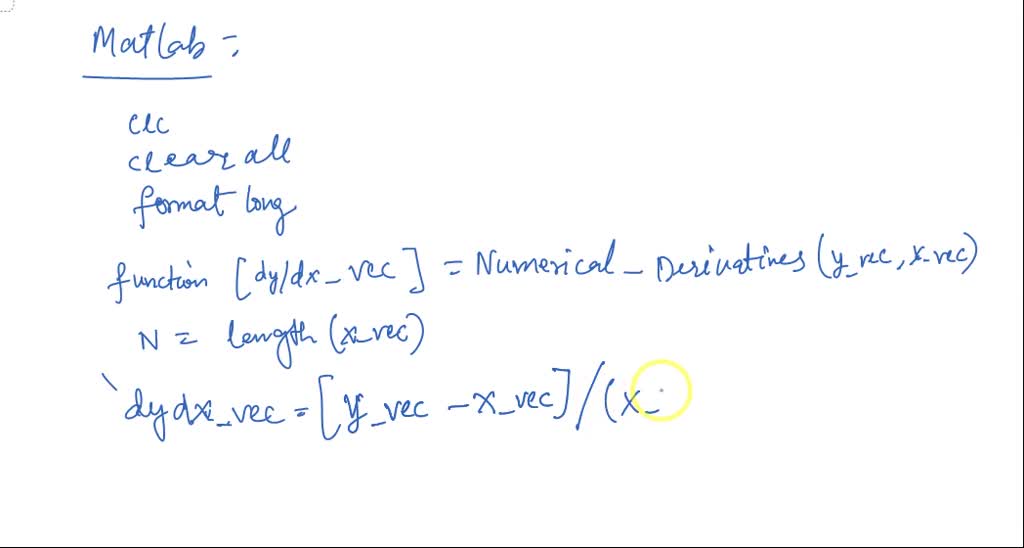 Matlab :
clc
clear all
format long
function [dy/dx_vec] = Numerical_Derivatines (y_vec, x_vec)
N = length (x_vec)
dydx_vec = [y_vec - x_vec] / (x_